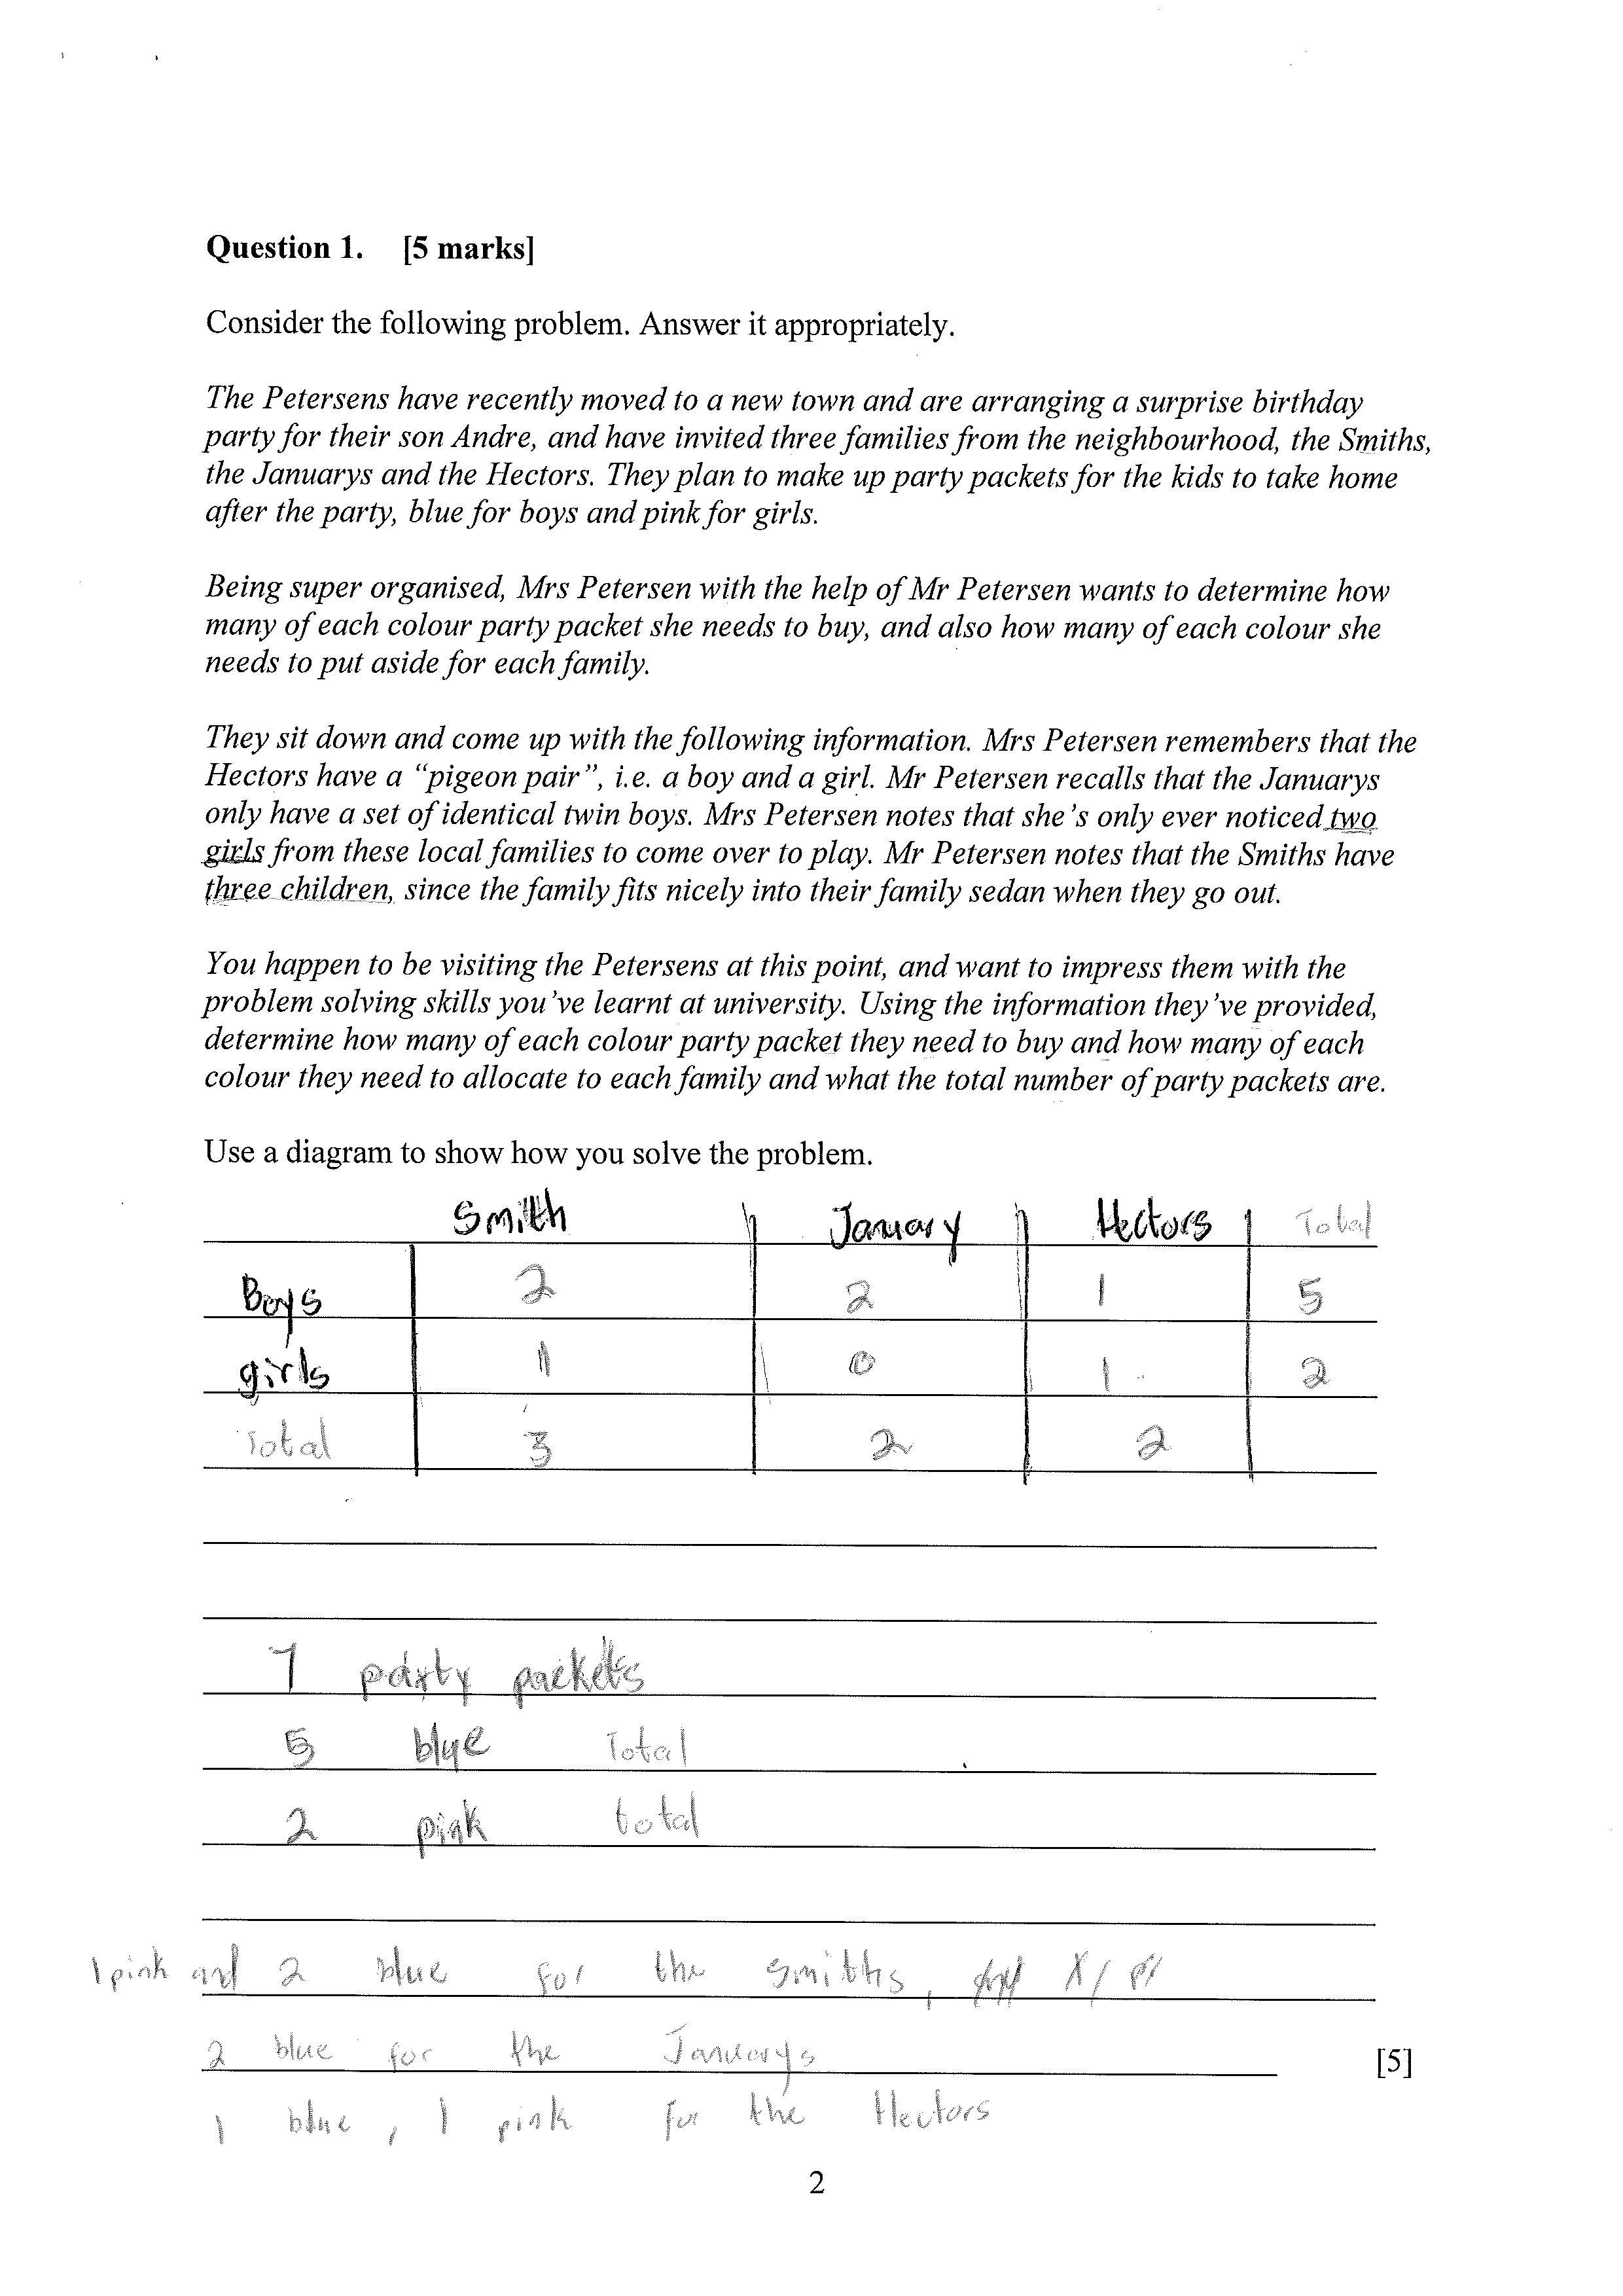 Question 1. [5 marks]
Consider the following problem. Answer it appropriately.
The Petersens have recently moved to a new town and are arranging a surprise birthday
party for their son Andre, and have invited three families from the neighbourhood, the Smiths,
the Januarys and the Hectors. They plan to make up party packets for the kids to take home
after the party, blue for boys and pink for girls.
Being super organised, Mrs Petersen with the help of Mr Petersen wants to determine how
many of each colour party packet she needs to buy, and also how many of each colour she
needs to put aside for each family.
They sit down and come up with the following information. Mrs Petersen remembers that the
Hectors have a “pigeon pair”, i.e. a boy and a girl. Mr Petersen recalls that the Januarys
only have a set of identical twin boys. Mrs Petersen notes that she's only ever noticed two
girls from these local families to come over to play. Mr Petersen notes that the Smiths have
three children, since the family fits nicely into their family sedan when they go out.
You happen to be visiting the Petersens at this point, and want to impress them with the
problem solving skills you've learnt at university. Using the information they've provided,
determine how many of each colour party packet they need to buy and how many of each
colour they need to allocate to each family and what the total number of party packets are.
Use a diagram to show how you solve the problem.
Smith January Hectors Total
Boys 2 2 1 5
girls 1 0 1 2
Total 3 2 2
7 party packets
5 blue Total
2 pink total
1 pink and 2 blue for the smiths,
2 blue for the Januarys [5]
1 blue, 1 pink for the Hectors
2